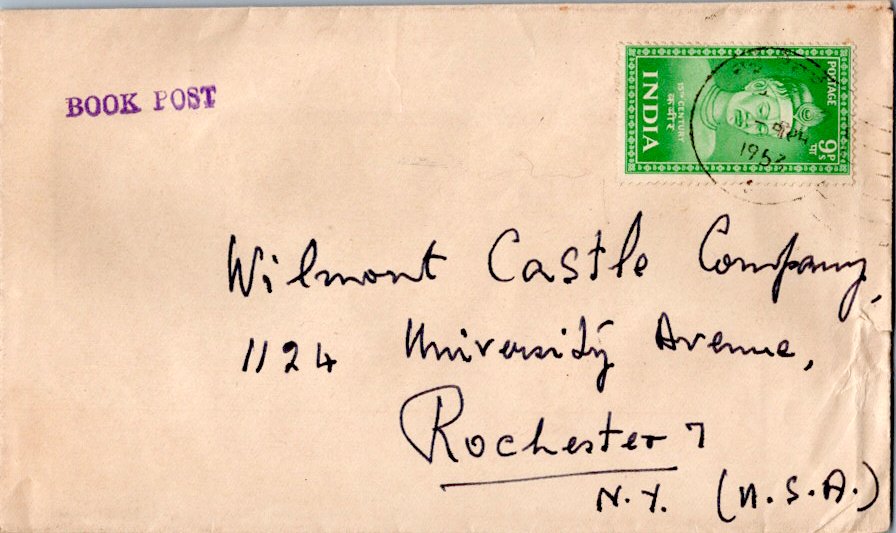 BOOK POST
POSTAGE
9P
पाs
15TH CENTURY
कबीर
INDIA
1953
Wilmont Castle Company,
1124 University Avenue,
Rochester 7
N.Y. (U.S.A.)